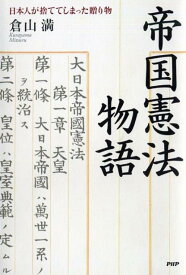 日本人が捨ててしまった贈り物
倉山 満
Kurayama
Mitsuru
帝国憲法
物語
大日本帝國憲法
第一章 天皇
第一條 大日本帝國ハ萬世一系ノ
ヲ統治ス
第二條 皇位ハ皇室典範ノ定ムル
PHP